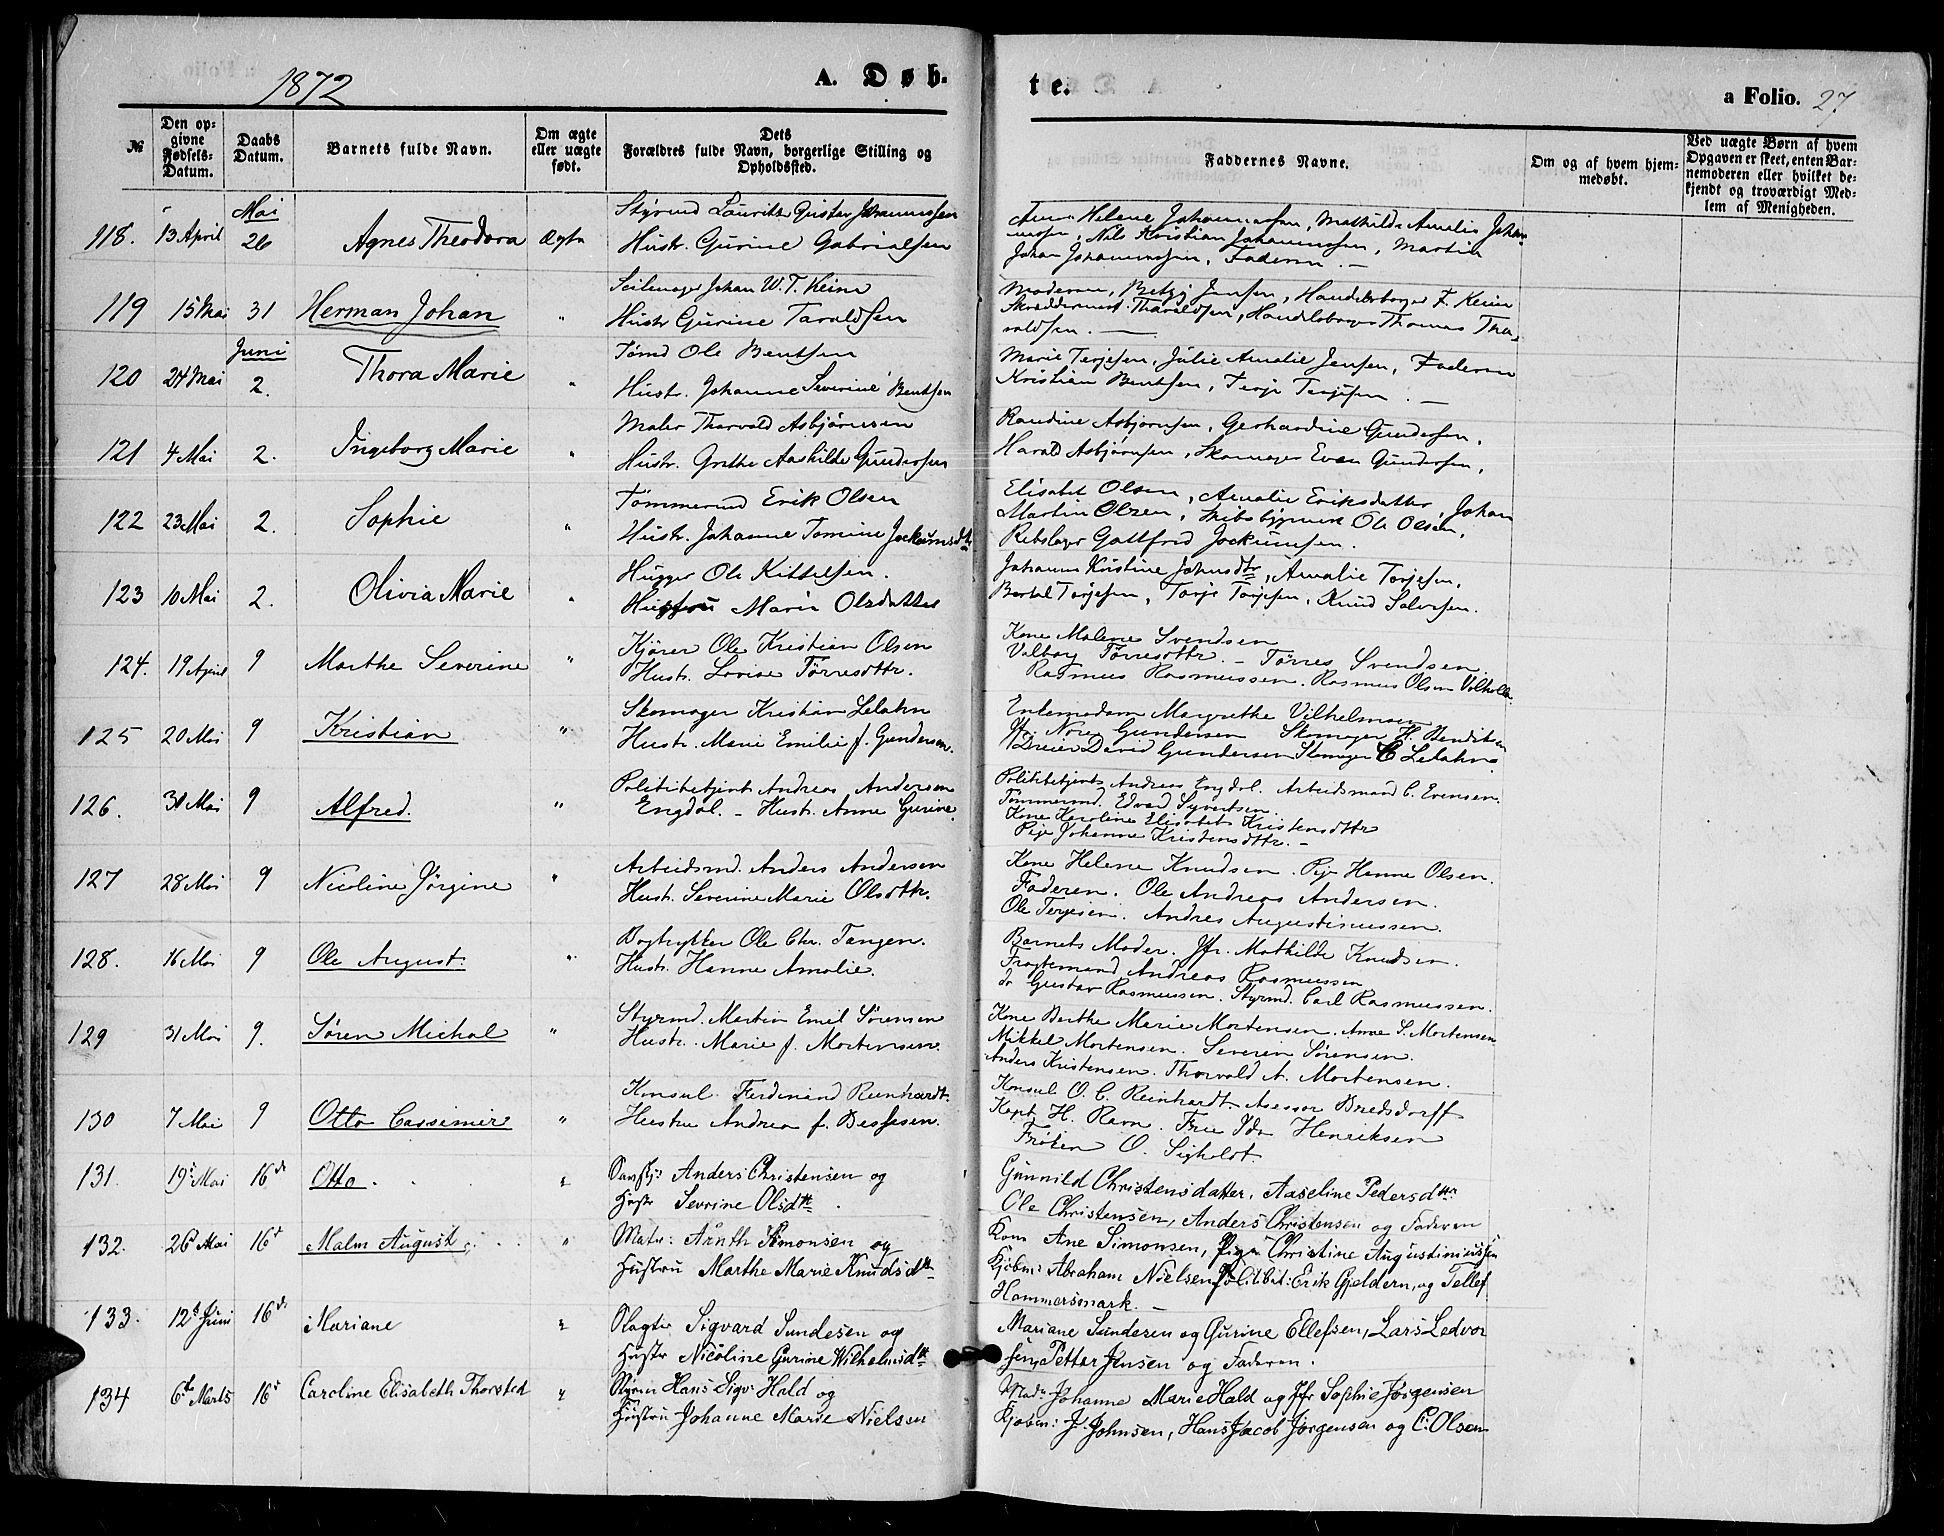 1872
A. Døb-
te.
a Folio. 27
№
Den op-
givne
Fødsels-
Datum.
Daabs
Datum.
Barnets fulde Navn.
Om ægte
eller uægte
født.
Dets
Forældres fulde Navn, borgerlige Stilling og
Opholdssted.
Faddernes Navne.
Om og af hvem hjem-
medøbt.
Ved uægte Børn af hvem
Opgaven er skeet, enten Bar-
nemoderen eller hvilket be-
kjendt og troværdigt Med-
lem af Menigheden.
Mai
118. 13 April 26 Agnes Theodora Ægte
Styrmd Lauritz Gustav Johannessen
Hustr. Gurine Gabrielsen
Helene Johannessen, Mathilde Amalie Johan-
nessen, Nils Kristian Johannessen, Martin
Johan Johannessen, Faderen. —
119 15 Mai 31 Herman Johan "
Seilmager Johan W. T. Keim
Hustr Gurine Taraldsen
Moderen, Betzy Jensen, Handelsborger F. Keim
Skreddermest. Tharaldsen, Handelsborger Thomas Tha-
raldsen. —
Juni
120 24 Mai 2. Thora Marie "
Tømd Ole Bentsen
Hustr. Johanne Severine Bentsen
Marie Terjesen, Julie Amalie Jensen, Faderen
Kristian Bentsen, Terje Terjesen. —
121 4 Mai 2. Ingeborg Marie "
Maler Thorvald Asbjørnsen
Hustr. Grethe Aashilde Gundersen
Randine Asbjørnsen, Gerhardine Gundersen,
Harald Asbjørnsen, Skomager Even Gundersen,
122 23 Mai 2. Sophie "
Tømmermd Erik Olsen
Hustr. Johanne Tomine Jockumsdtr
Elisabet Olsen, Amalie Eriksdatter, Johan
Martin Olsen, Skibsbygmest Ole Olsen,
Rebslager Gottfred Jockumsen.
123 10 Mai 2. Olivia Marie "
Hugger Ole Kittelsen.
Hustru Marie Olsdatter
Johanne Kristine Johnsdtr, Amalie Terjesen,
Bertel Terjesen, Terje Terjesen, Knud Salvesen.
124. 19 April 9 Marthe Severine "
Kjører Ole Kristian Olsen
Hustr. Lovise Tørresdttr.
Kone Malene Svendsen
Valborg Tørresdttr. – Tørres Svendsen
Rasmus Rasmussen. Rasmus Olsen
125 20 Mai 9 Kristian "
Skomager Kristian Lelahn
Hustr. Marie Emilie f. Gundersen.
Enkemadam Margrethe Vilhelmsen
Nora Gundersen Skomager H. Bendiksen
Dreier David Gundersen Skomager C Lelahn.
126. 31 Mai 9 Alfred. "
Politibetjent Andreas Andersen
Engdal. – Hustr. Anne Gurine.
Politibetjent Andreas Engdal. Arbeidsmand C. Evensen.
Tømmermd. Edvard Syvertsen
Kone Karoline Elisabet Kristensdttr
Pige Johanne Kristensdttr. –
127 28 Mai 9 Nicoline Jørgine "
Arbeidsmd. Anders Andersen
Hustr. Severine Marie Olsdttr.
Kone Helene Knudsen. Pige Hanne Olsen.
Faderen. Ole Andreas Andersen.
Ole Terjesen. Andres Augustinussen.
128. 16 Mai 9 Ole August. "
Bogtrykker Ole Chr. Tangen.
Hustr. Hanne Amalie.
Barnets Moder. Jfr. Mathilde Knudsen.
Fragtemand Andreas Rasmussen
do Gustav Rasmussen. Styrmd. Carl Rasmussen.
129 31 Mai 9. Søren Michal "
Styrmd. Martin Emil Sørensen
Hustr. Marie f. Mortensen.
Kone Berthe Marie Mortensen. Anne S. Mortensen
Mikkel Mortensen. Severin Sørensen.
Anders Kristensen. Thorvald A. Mortensen.
130 7 Mai 9 Otto Cassimir "
Konsul Ferdinand Reinhardt.
Hustru Andrea f. Bessesen.
Konsul O. C. Reinhardt. Asessor Bredsdorff
Kapt. H. Ravn. Frue Ida Henriksen
Frøken O. Sigholdt.
131. 19 Mai 16de Otto. "
Anders Christensen og
Hustr Sevrine Olsdtr.
Gunnild Christensdatter, Aaseline Pedersdtr
Ole Christensen, Anders Christensen og Faderen
132. 26 Mai 16 Malm August. "
Matr: Arnth Simonsen og
Hustru Marthe Marie Knudsdtr
Kone Ane Simonsen, Pige Christine Augustinussen
Kjøbm: Abraham Nielsen, Politibet: Erik Gjeldern, og Tellef
Hammersmark. –
133. 12 Juni 16de Mariane "
Slagter Sigvard Sundesen og
Hustr Nicoline Gurine Wilhelmsdtr
Mariane Sundesen og Gurine Ellefsen, Lars Ledvor
sen, Petter Jensen og Faderen.
134 6te Marts 16 Caroline Elisabeth Thorsted "
Styrm Hans Sigv: Hald og
Hustru Johanne Marie Nielsen
Madm Johanne Marie Hald og Jfr Sophie Jørgensen
Kjøbm: J. Johnsen, Hans Jacob Jørgensen og C. Olsen